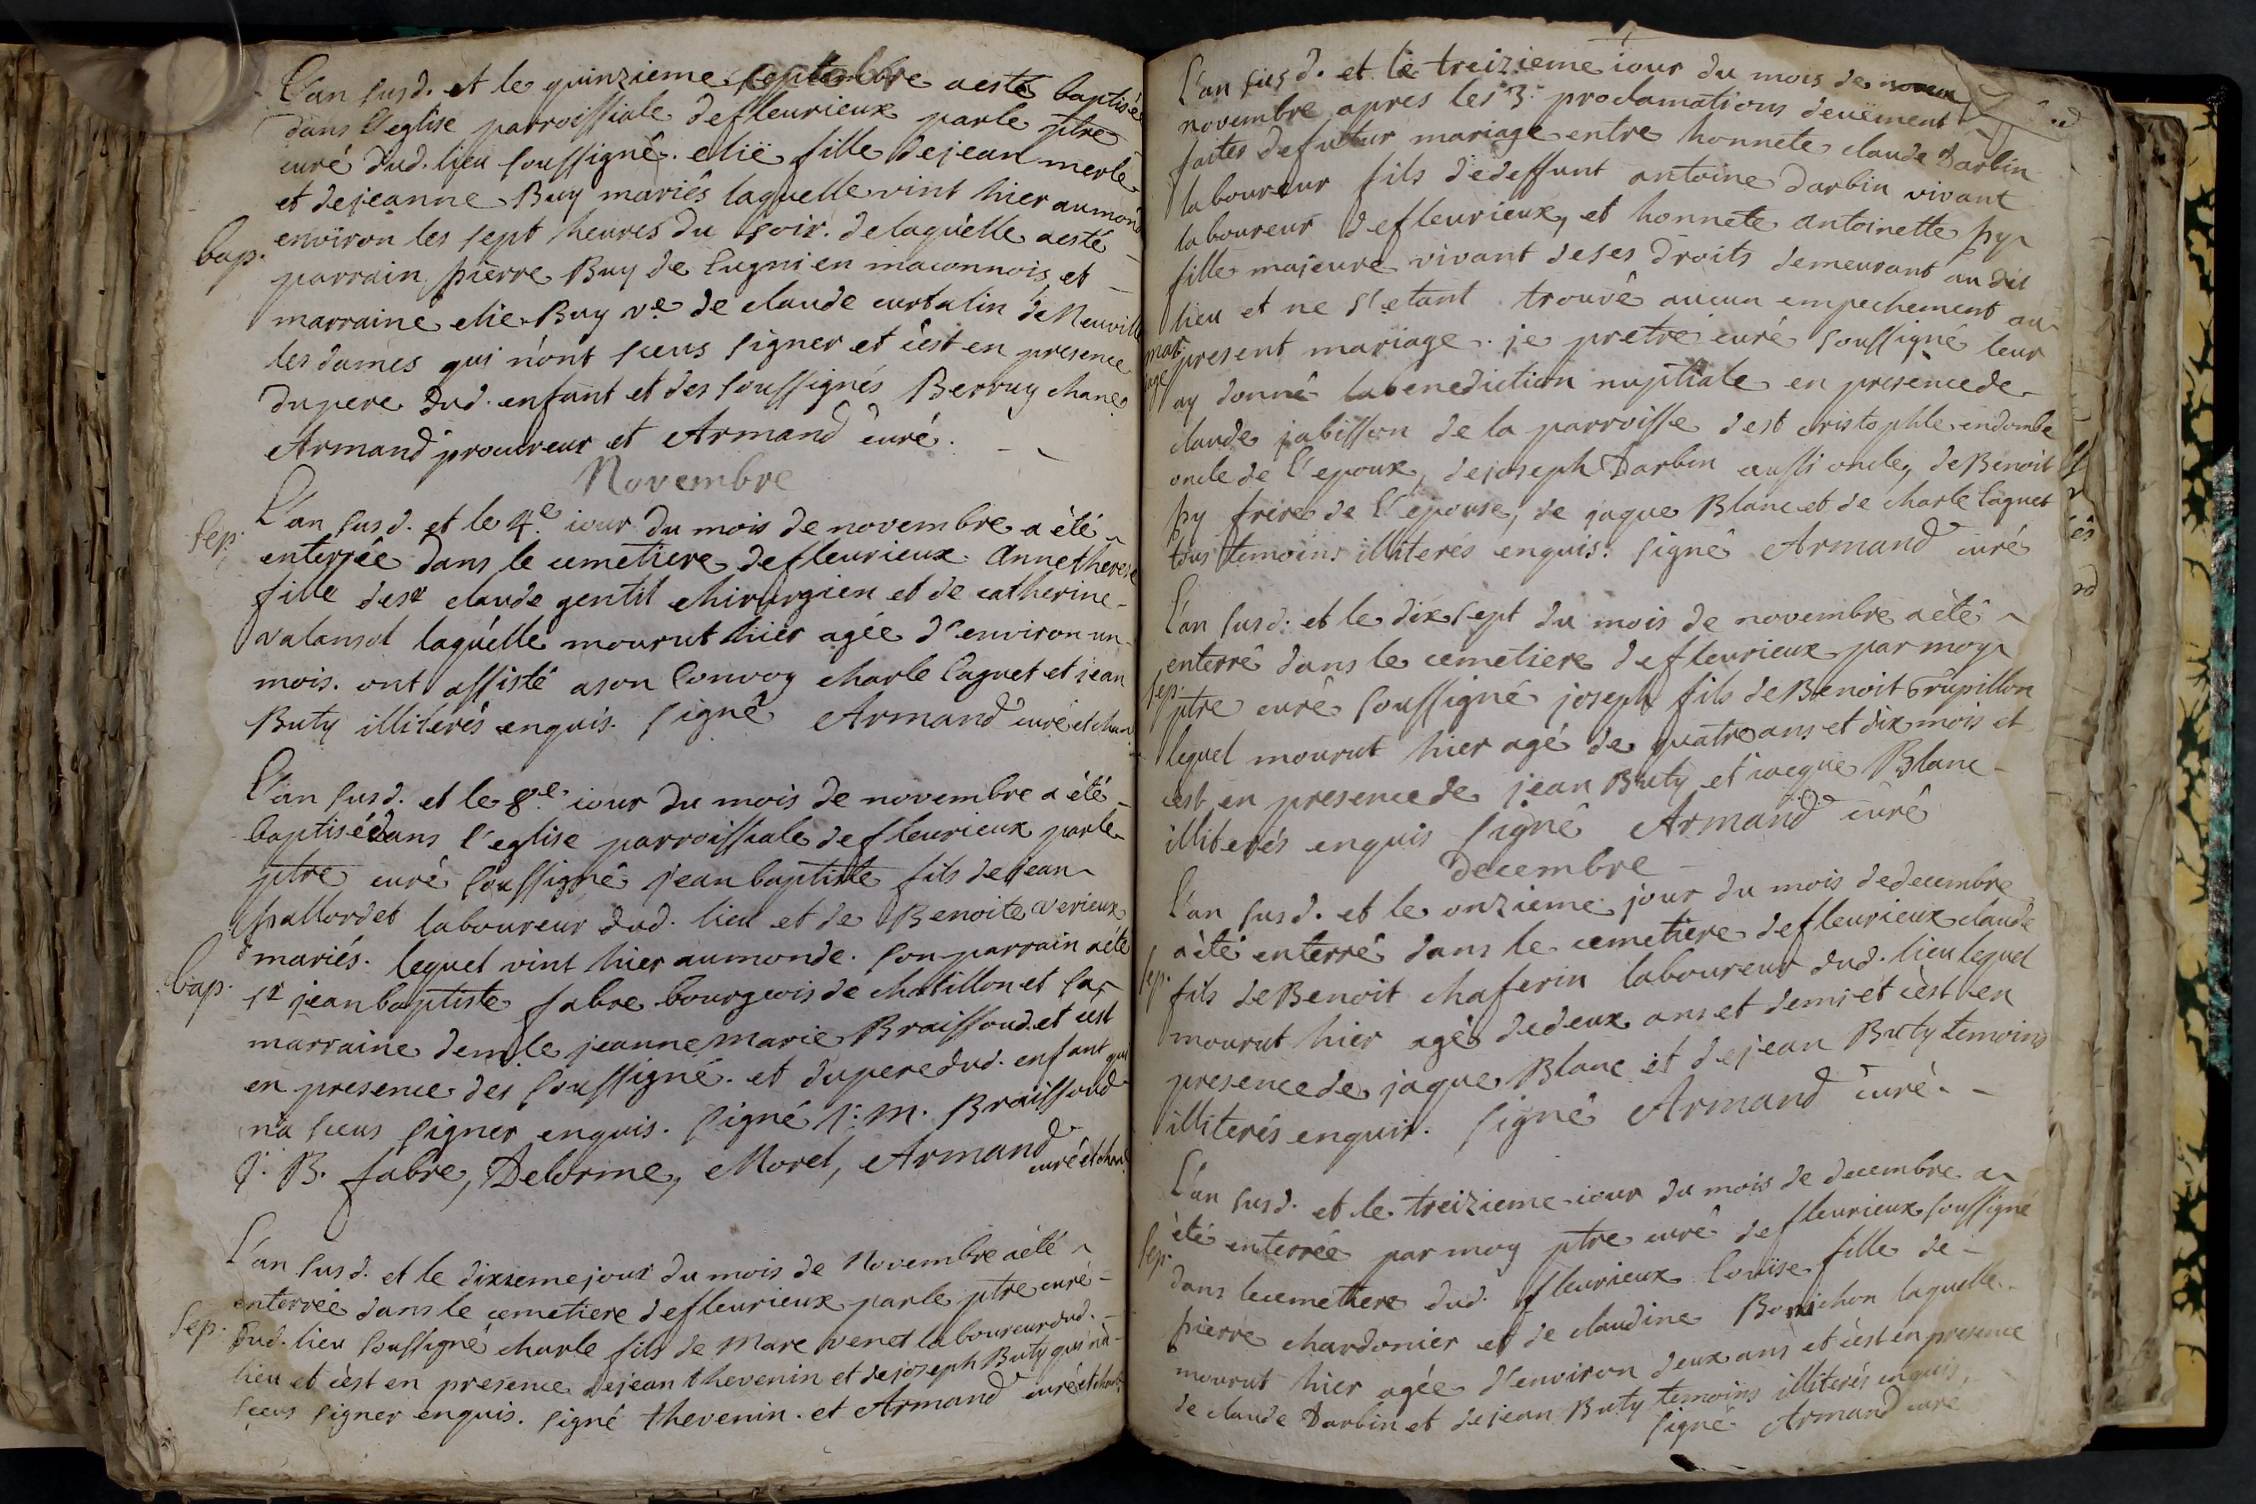 L'an susd. et le quinzieme octobre aesté baptisée
dans l'eglise parroissiale defleurieux parle ptre
curé dud. lieu soussigné. elië fille dejean merle
et dejeanne Buy mariés laquelle vint hier aumonde
environ les sept heures du soir. delaquelle aesté
bap.
parrain pierre Buy de lugni en maconnois, et
marraine elie Buy ve. de claude curtalin de Neuville
les dames qui n'ont sceus signer et c'est en presence
dupere dud. enfant et des soussignés Berruy chane.
Armand procureur et Armand curé.
Novembre
Sep.
L'an susd. et le 4.e iour du mois de novembre a été
enterrée dans le cemetiere defleurieux Annetherese
fille desr claude gentil chirurgien et de catherine
valansol laquelle mourut hier agée d'environ un
mois. ont assisté ason convoy charle laguet et jean
Buty illiterés enquis. signé Armand curé et chan.
L'an susd. et le 8.e iour du mois de novembre a été
baptisé dans l'eglise parroissiale defleurieux parle
ptre curé soussigné jean baptiste fils dejean
pallordet laboureur dud. lieu et de Benoite verieux
mariés. lequel vint hier aumonde. son parrain aété
bap.
sr jean baptiste fabre bourgeois de chatillon et sa
marraine demlle jeanne marie Braissoud. et cest
en presence des soussigné. et dupere dud. enfant qui
n'a sceus signer enquis. signé j: m. Braissoud
J. B. fabre, Delorme, Morel, Armand
curé et chan.
L'an susd. et le dixiemejour du mois de Novembre aété
enterrée dans le cemetiere defleurieux parle ptre curé
Sep.
dud. lieu soussigné charle fils de Marc venet laboureur dud.
lieu et c'est en presence dejean thevenin et dejoseph Buty qui n'a
sceus signer enquis. signé thevenin. et Armand curé et chan.
L'an susd. et le treizieme iour du mois de
novembre apres les 3. proclamations deuëment
faites defutur mariage entre honnete claude Darbin
laboureur fils dedeffunt antoine darbin vivant
laboureur defleurieux, et honnete antoinette py
fille majeure vivant deses droits demeurant au dit
lieu et ne s'etant trouvé aucun empechement au
mariage
present mariage. je pretre curé soussigné leur
ay donné labenediction nuptiale en presencede
claude jabisson de la parroisse dest cristophle endombe
oncle de l'epoux, dejoseph Darbin aussi oncle, deBenoit
py frere de l'epouse, de jaque Blanc et de charle laguet
tous temoins illiterés enquis. signé Armand curé
L'an susd. et le dix sept du mois de novembre aété
enterré dans le cemetiere defleurieux par moy
sep.
ptre curé soussigné joseph fils deBenoit Grupillon
lequel mourut hier agé de quatre ans et dix mois et
cest en presencede jean Buty et iacque Blanc
illiterés enquis signé Armand curé
Decembre
L'an susd. et le onzieme jour du mois dedecembre
aété enterré dans le cemetiere defleurieux claude
sep.
fils deBenoit chaferin laboureur dud. lieu lequel
mourut hier agé dedeux ans et demi et c'est en
presencede jaque Blanc et dejean Buty temoins
illiterés enquis. signé Armand curé.
L'an susd. et le treizieme iour du mois de decembre a
été enterrée par moy ptre curé defleurieux soussigné
Sep.
dans lecemetiere dud. fleurieux Louise fille de
pierre chardonier et de claudine Bonichon laquelle
mourut hier agée d'environ deux ans et c'est en presence
de claude Darbin et dejean Buty temoins illiterés enquis,
signé Armand curé